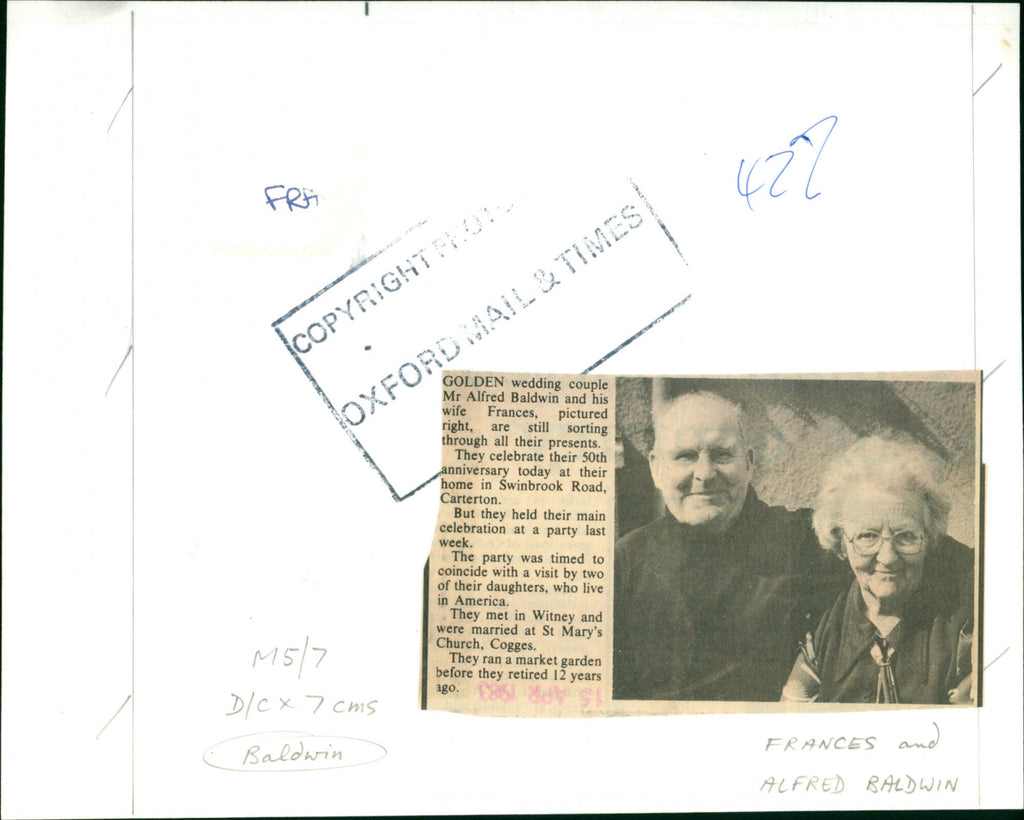 427
FRA
COPYRIGHT PHOTO
OXFORD MAIL & TIMES
GOLDEN wedding couple
Mr Alfred Baldwin and his
wife Frances, pictured
right, are still sorting
through all their presents.
They celebrate their 50th
anniversary today at their
home in Swinbrook Road,
Carterton.
But they held their main
celebration at a party last
week.
The party was timed to
coincide with a visit by two
of their daughters, who live
in America.
They met in Witney and
were married at St Mary's
Church, Cogges.
They ran a market garden
before they retired 12 years
ago.
15 APR 1983
M5/7
D/C x 7 cms
Baldwin
FRANCES and
ALFRED BALDWIN